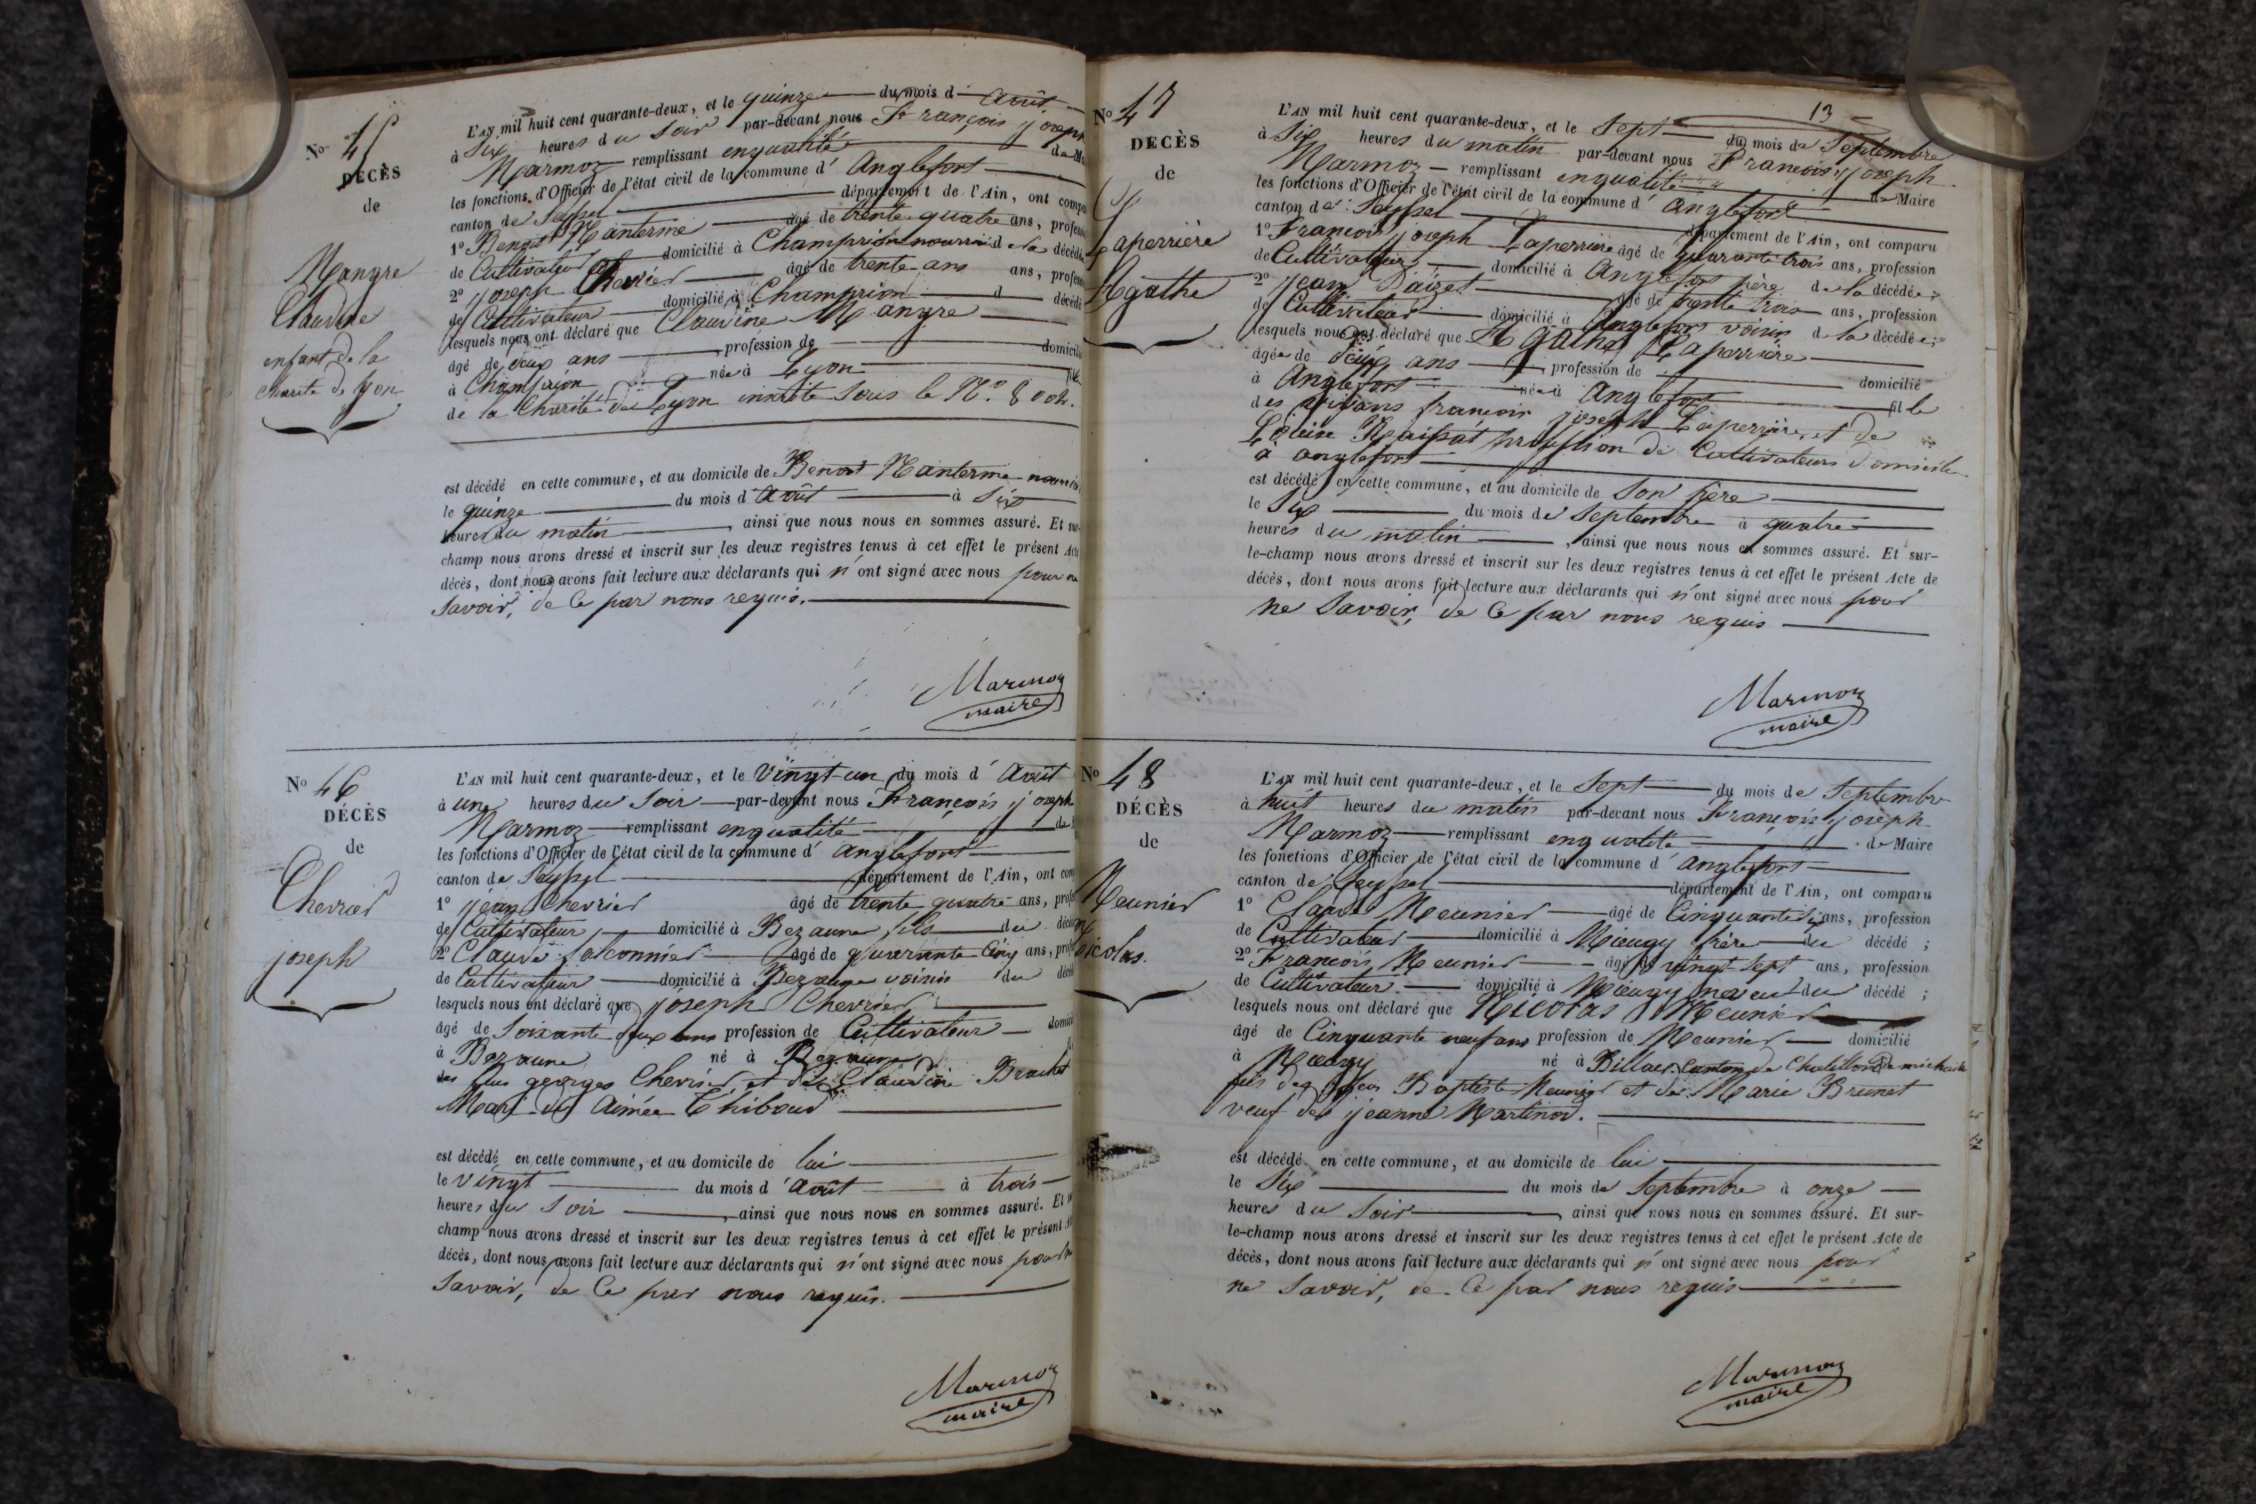 No 45
DÉCÈS
de
Mangre
Claudine
enfant de la
charité de lyon
L'AN mil huit cent quarante-deux, et le quinze du mois d' Août
à Six heures du Soir par-devant nous François joseph
Marmoz remplissant enqualité de M
les fonctions d'Officier de l'état civil de la commune d' Anglefort
canton de Seyssel département de l'Ain, ont compa
1o Benoit Manterme âgé de trente quatre ans, profess
de Cultivateur domicilié à Champrion nourri de la décédé
2o joseph Chevrier âgé de trente ans ans, profess
de Cultivateur domicilié à Champrion d décédé
lesquels nous ont déclaré que Claudine Mangre
âgé de deux ans profession de domicilié
à Champrion née à Lyon fille
de la Charité de Lyon inscrite sous le No. 8002.
est décédé en cette commune, et au domicile de Benoit Manterme nourri
le quinze du mois d' Août à Six
heures du matin, ainsi que nous nous en sommes assuré. Et sur
champ nous avons dressé et inscrit sur les deux registres tenus à cet effet le présent Acte
décès, dont nous avons fait lecture aux déclarants qui n'ont signé avec nous pour ne
Savoir, de Ce par nous requis.
Marmoz
maire
No 46
DÉCÈS
de
Chevrier
joseph
L'AN mil huit cent quarante-deux, et le Vingt-un du mois d' Août
à une heures du Soir par-devant nous François joseph
Marmoz remplissant enqualité de
les fonctions d'Officier de l'état civil de la commune d' anglefort
canton de Seyssel département de l'Ain, ont com
1o jean Chevrier âgé de trente quatre ans, profes
de Cultivateur domicilié à Bezaune fils du décé
2o Claude falconnier âgé de quarante Cinq ans, prof
de Cultivateur domicilié à Bezaune voisin du décé
lesquels nous ont déclaré que joseph Chevrier
âgé de Soixante deux ans profession de Cultivateur domici
à Bezaune né à Bezaune
des feus georges Chevrier et de Claudine Brachet
Mari de Aimée Thiboud
est décédé en cette commune, et au domicile de lui
le Vingt du mois d' Août à trois
heures du Soir, ainsi que nous nous en sommes assuré. Et
champ nous avons dressé et inscrit sur les deux registres tenus à cet effet le présent
décès, dont nous avons fait lecture aux déclarants qui n'ont signé avec nous pour ne
Savoir, de Ce par nous requis.
Marmoz
maire
13
No 47
DÉCÈS
de
Laperrière
Agathe
L'AN mil huit cent quarante-deux, et le Sept du mois de Septembre
à Six heures du matin par-devant nous François joseph
Marmoz remplissant enqualité de Maire
les fonctions d'Officier de l'état civil de la commune d' anglefort
canton de Seyssel département de l'Ain, ont comparu
1o François joseph Laperrière âgé de quarante trois ans, profession
de Cultivateur domicilié à Anglefort père de la décédée;
2o jean Pairet âgé de trente trois ans, profession
de Cultivateur domicilié à Anglefort voisin de la décédée;
lesquels nous ont déclaré que Agathe Laperrière
âgée de deux ans profession de domicilié
à Anglefort née à Anglefort fille
des vivans francois joseph Laperrière, et de
Louise Maissat profession de Cultivateurs domicilié
à anglefort
est décédé en cette commune, et au domicile de Son père
le Six du mois de Septembre à quatre
heures du matin, ainsi que nous nous en sommes assuré. Et sur-
le-champ nous avons dressé et inscrit sur les deux registres tenus à cet effet le présent Acte de
décès, dont nous avons fait lecture aux déclarants qui n'ont signé avec nous pour
ne Savoir, de Ce par nous requis
Marmoz
maire
No 48
DÉCÈS
de
Meunier
Nicolas.
L'AN mil huit cent quarante-deux, et le Sept du mois de Septembre
à huit heures du matin par-devant nous François joseph
Marmoz remplissant enqualité de Maire
les fonctions d'Officier de l'état civil de la commune d' anglefort
canton de Seyssel département de l'Ain, ont comparu
1o Claude Meunier âgé de Cinquante Six ans, profession
de Cultivateur domicilié à Mieugy frère du décédé;
2o François Meunier âgé de vingt Sept ans, profession
de Cultivateur domicilié à Mieugy neveu du décédé;
lesquels nous ont déclaré que Nicolas Meunier
âgé de Cinquante neuf ans profession de Meunier domicilié
à Mieugy né à Billiat Canton de Chatillon de michaille
fils de Jean Baptiste Meunier et de Marie Brunet
veuf de jeanne Martinod.
est décédé en cette commune, et au domicile de lui
le Six du mois de Septembre à onze
heures du Soir, ainsi que nous nous en sommes assuré. Et sur-
le-champ nous avons dressé et inscrit sur les deux registres tenus à cet effet le présent Acte de
décès, dont nous avons fait lecture aux déclarants qui n'ont signé avec nous pour
ne Savoir, de Ce par nous requis
Marmoz
maire